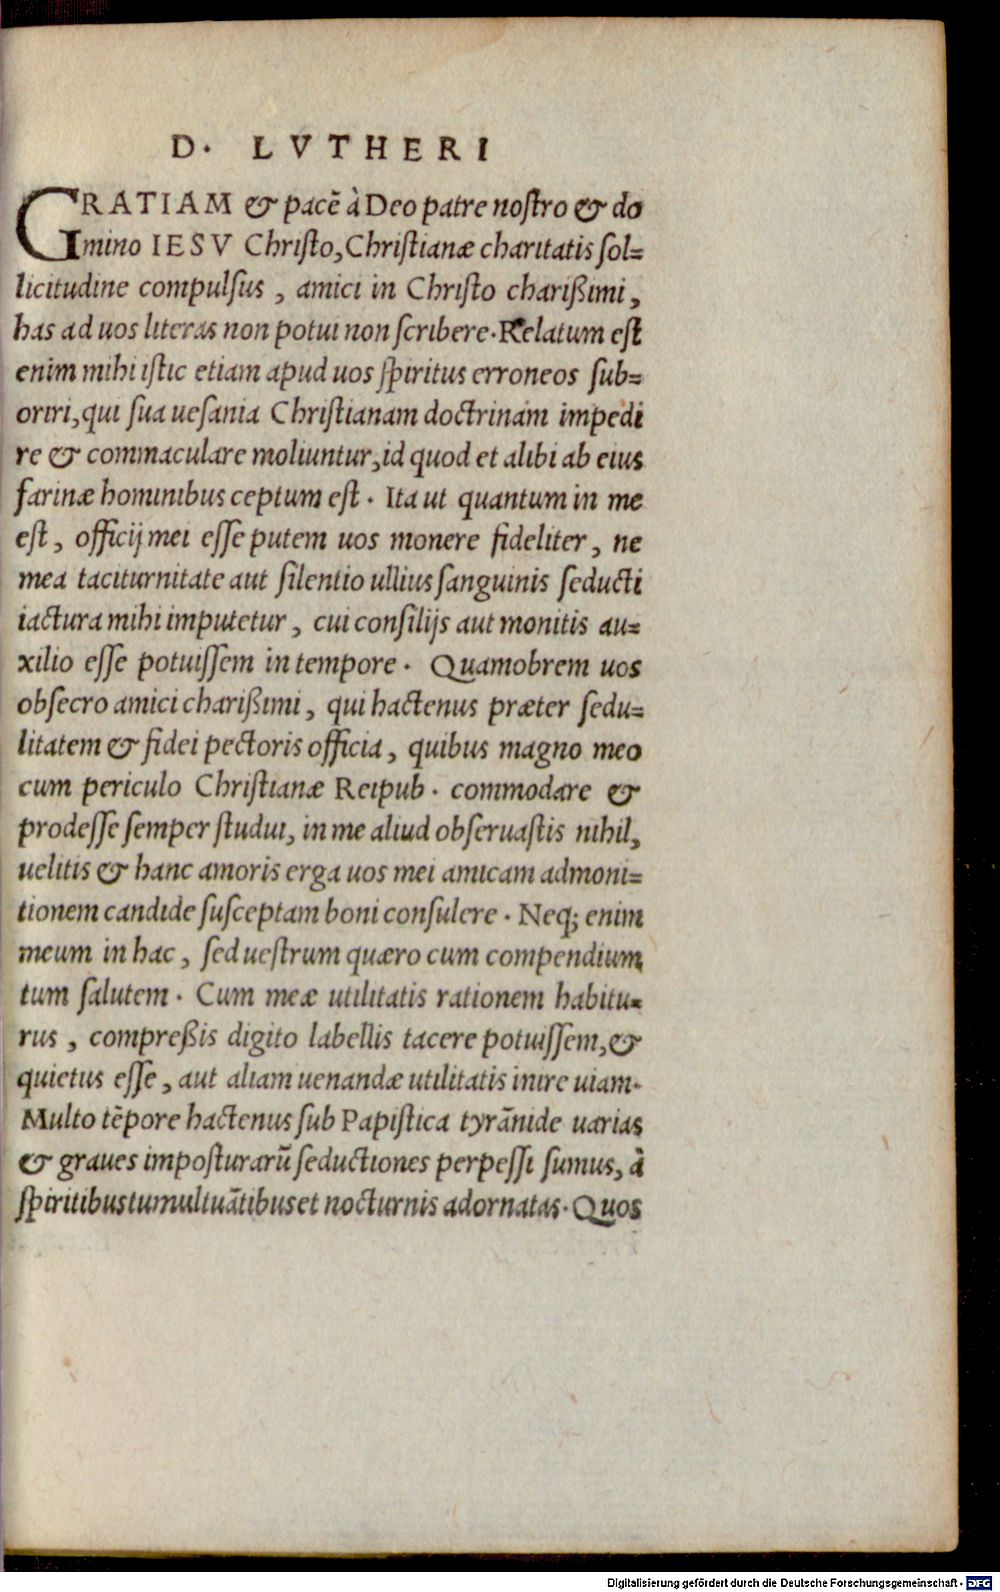 D. LVTHERI
GRATIAM & pacẽ à Deo patre nostro & do
mino IESV Christo, Christianæ charitatis sol=
licitudine compulsus, amici in Christo charißimi,
has ad uos literas non potui non scribere. Relatum est
enim mihi istic etiam apud uos spiritus erroneos sub=
oriri, qui sua uesania Christianam doctrinam impedi
re & commaculare moliuntur, id quod et alibi ab eius
farinæ hominibus ceptum est. Ita ut quantum in me
est, officij mei esse putem uos monere fideliter, ne
mea taciturnitate aut silentio ullius sanguinis seducti
iactura mihi imputetur, cui consilijs aut monitis au=
xilio esse potuissem in tempore. Quamobrem uos
obsecro amici charißimi, qui hactenus præter sedu=
litatem & fidei pectoris officia, quibus magno meo
cum periculo Christianæ Reipub. commodare &
prodesse semper studui, in me aliud obseruastis nihil,
uelitis & hanc amoris erga uos mei amicam admoni=
tionem candide susceptam boni consulere. Neq; enim
meum in hac, sed uestrum quæro cum compendium
tum salutem. Cum meæ utilitatis rationem habitu=
rus, compreßis digito labellis tacere potuissem, &
quietus esse, aut aliam uenandæ utilitatis inire uiam.
Multo tẽpore hactenus sub Papistica tyrãnide uarias
& graues imposturarũ seductiones perpessi sumus, à
spiritibus tumultuãtibus et nocturnis adornatas. Quos
Digitalisierung gefördert durch die Deutsche Forschungsgemeinschaft - DFG